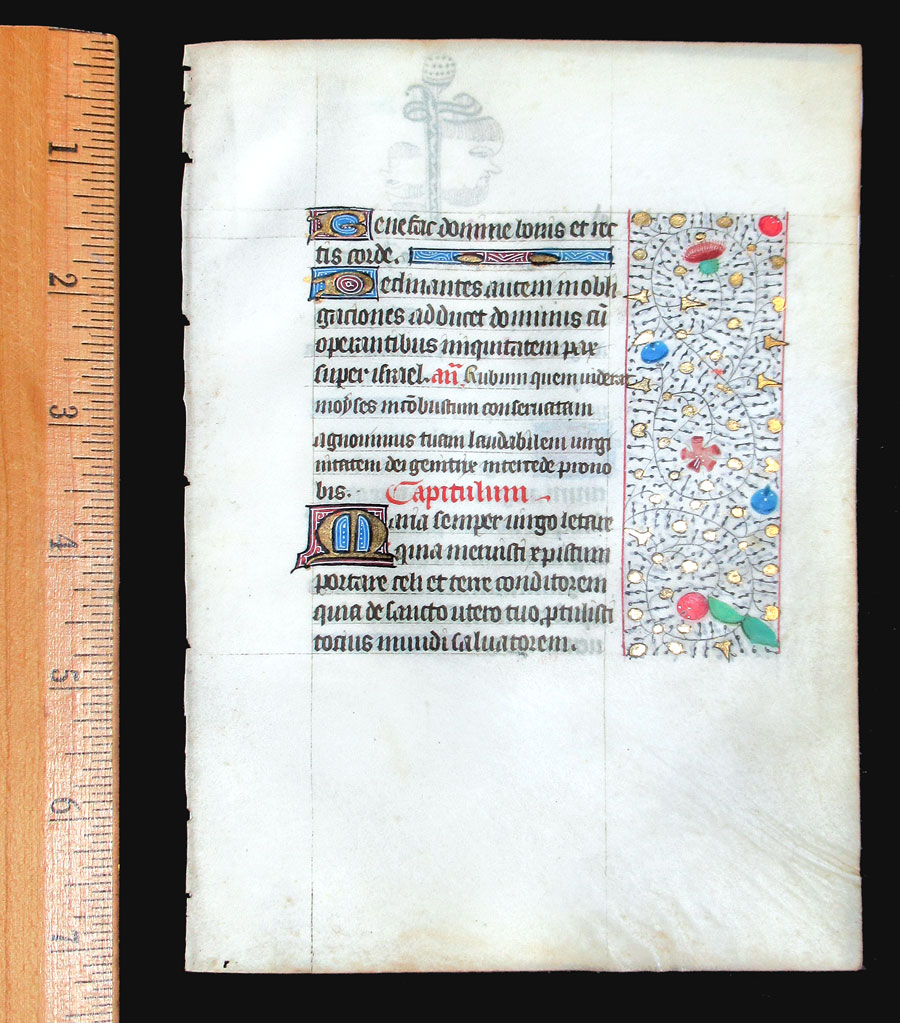 Benefac domine bonis et rec
tis corde.
Declinantes autem in obli
gaciones adducet dominus cū
operantibus iniquitatem pax
super israel. añ Rubum quem uiderat
moyses incōbustum conseruatam
agnouimus tuam laudabilem uirgi
nitatem dei genitrix intercede pro no
bis. Capitulum
Maria semper uirgo letare
quia meruisti xpistum
portare celi et terre conditorem
quia de sancto utero tuo ꝓtulisti
tocius mundi saluatorem.
1
2
3
4
5
6
7